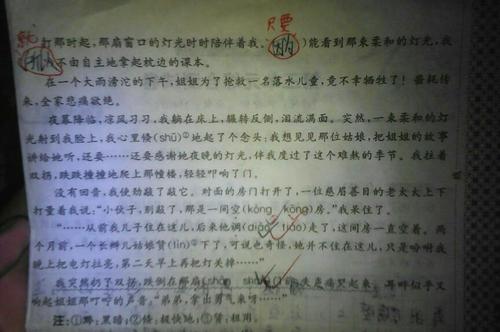 就 只要
打那时起，那扇窗口的灯光时时陪伴着我。（因为）能看到那束柔和的灯光，我
不由自主地拿起枕边的课本。
在一个大雨滂沱的下午，姐姐为了抢救一名落水儿童，竟不幸牺牲了！噩耗传
来，全家悲痛欲绝。
夜幕降临，凉风习习，我躺在床上，辗转反侧，泪流满面。突然，一束柔和的灯
光射到我脸上，我心里倏(shū)②地起了个念头：我想见见那位姑娘，把姐姐的故事
讲给她听，还要……还要感谢她夜晚的灯光，伴我度过了这个难熬的季节。我拄着
双拐，跌跌撞撞地爬上那幢楼，轻轻叩响了门。
没有回音，我使劲敲了敲它。对面的房门打开了，一位慈眉善目的老太太上下
打量着我说：“小伙子，别敲了，那是一间空(kōng kòng)房。”我呆住了。
“……从前我儿子住在这儿，后来他调(diào tiáo)走了，这间房一直空着。两
个月前，一个长辫儿姑娘赁(lìn)③下了，可说也奇怪，她并不住在这儿，只是吩咐我
晚上把电灯拉亮，第二天早上再把灯关掉……”
我突然扔了双拐，跌倒在那扇(shàn shān)门前，失声痛哭起来，耳畔似乎又
响起姐姐那叮咛的声音：“弟弟，拿出勇气来呀……”
注：①黯：黑暗；②倏：极快地；③赁：租用。